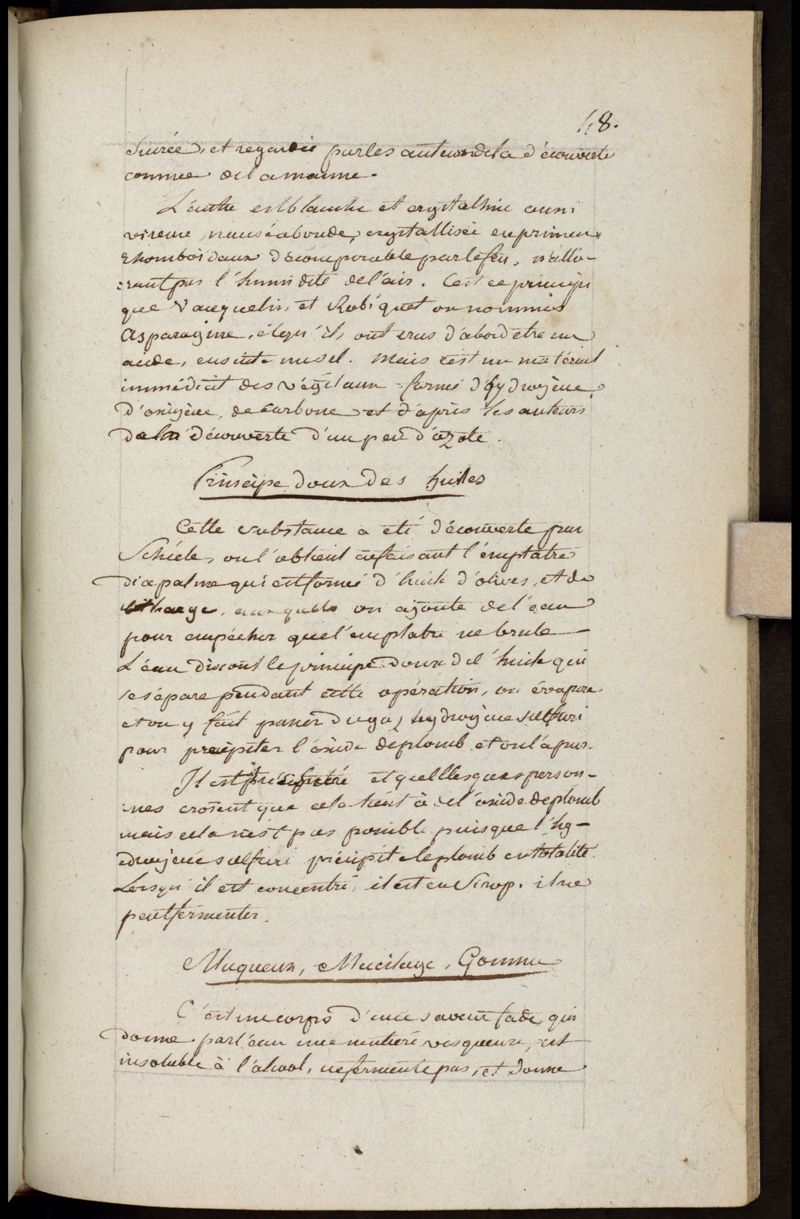 48.
Sucrée, et regardée par les auteurs de la découverte
comme de la manne.
L'autre est blanche et crystalline aussi
vireuse, nauséabonde, crystallisée en prismes
rhomboidaux décomposable par le feu, n'atti-
rant pas l'humidité de l'air. C'est ce principe
que Vauquelin, et Robiquet on nommés
Asparagine, et qu'ils ont crus d'abord etre un
acide, ensuite un sel. Mais c'est un materiel
immédiat des végétaux formé d'hydrogène,
d'oxigène, de carbone et d'après les auteurs
de la découverte d'un peu d'azote.
Principe doux des huiles
Cette substance a été découverte par
Schéele, on l'obtient en faisant l'emplatre
diapalme qui est formé d'huile d'olives, et de
litharge, auxquels on ajoute de l'eau
pour empécher que l'emplatre ne brule
L'eau dissout le principe doux de l'huile qui
se sépare pendant cette opération, on évapore
et on y fait passer du gaz hydrogène sulfuré
pour précipiter l'oxide de plomb et on l'a pur.
Il est et quelles ques person-
nes croient que cela tient à de l'oxide de plomb
mais cela n'est pas possible puisque l'hy-
drogène sulfuré précipite le plomb en totalité.
Lorsqu'il est concentré, il est en Sirop, il ne
peut fermenter.
Muqueux, Mucilage, Gomme
C'est un corps d'une saveur fade, qui
donne par l'eau une matiere visqueuse, est
insoluble à l'alcool, ne fermente pas, et donne